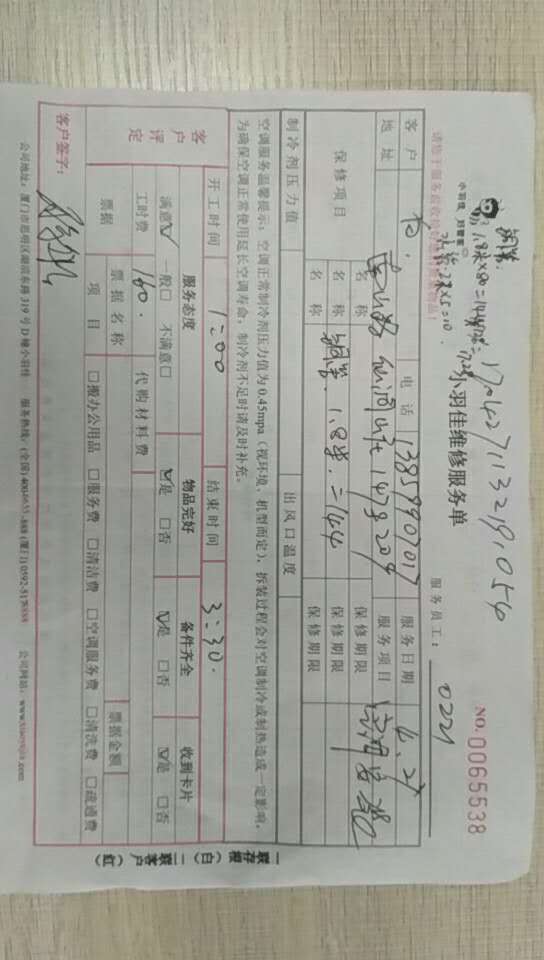 铜管
1.8米×80=144
1704271132191054
小羽佳 好管家
小羽佳维修服务单
NO.0065538
服务员工: 0221
客户 电话 13859907017 服务日期 4.27
地址 服务项目
保修项目 名称 保修期限
名称 铜管 1.8米=144 保修期限
名称 保修期限
制冷剂压力值 出风口温度
空调服务温馨提示:空调正常制冷剂压力值为0.45mpa(视环境、机型而定),拆装过程会对空调制冷或制热造成一定影响,
为确保空调正常使用延长空调寿命,制冷剂不足时请及时补充。
开工时间 1:00 结束时间 3:30.
客户评定 服务态度 物品完好 备件齐全 收到卡片
满意☑ 一般□ 不满意□ ☑是 □否 ☑是 □否 ☑是 □否
工时费 160. 代购材料费
票据 票据名称 票据金额
项目 □搬办公用品 □服务费 □清洁费 □空调服务费 □清洗费 □疏通费
客户签字:
公司地址:厦门市思明区湖滨东路319号D楼小羽佳 服务热线:(全国)4004655-888 (厦门)0592-5178888 公司网站:www.xiaoyujia.com
一联存根(白) 二联客户(红)